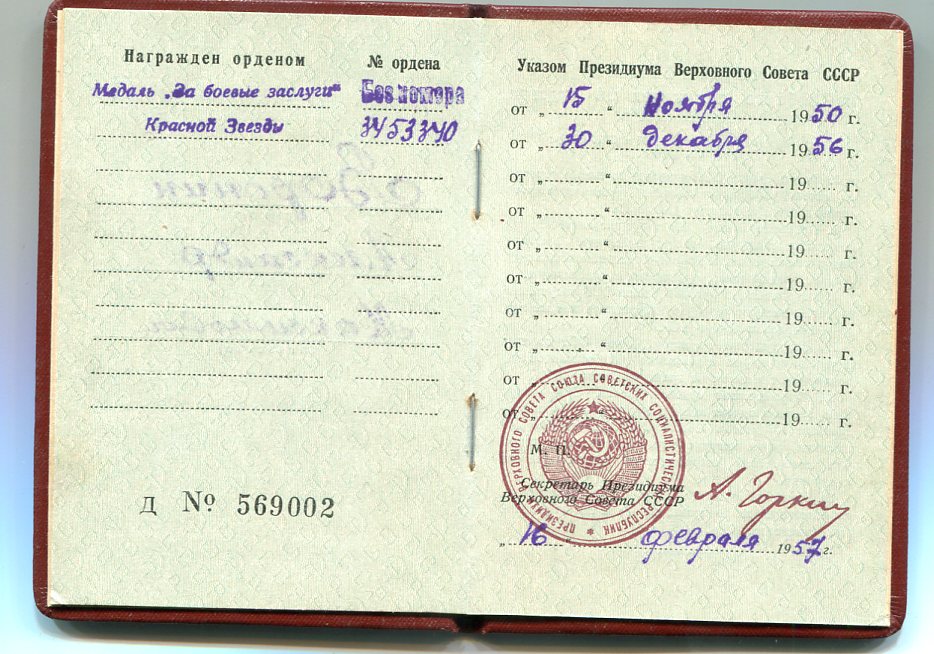 Награжден орденом № ордена
Медаль „За боевые заслуги“ Без номера
Красной Звезды 3453340
Д № 569002
Указом Президиума Верховного Совета СССР
от „ 15 “ Ноября 1950 г.
от „ 30 “ декабря 1956 г.
от „ “ 19 г.
от „ “ 19 г.
от „ “ 19 г.
от „ “ 19 г.
от „ “ 19 г.
от „ “ 19 г.
от „ “ 19 г.
от „ “ 19 г.
ПРЕЗИДИУМ ВЕРХОВНОГО СОВЕТА СОЮЗА СОВЕТСКИХ СОЦИАЛИСТИЧЕСКИХ РЕСПУБЛИК
М. П.
Секретарь Президиума
Верховного Совета СССР
А. Горкин
„ 16 “ февраля 1957 г.